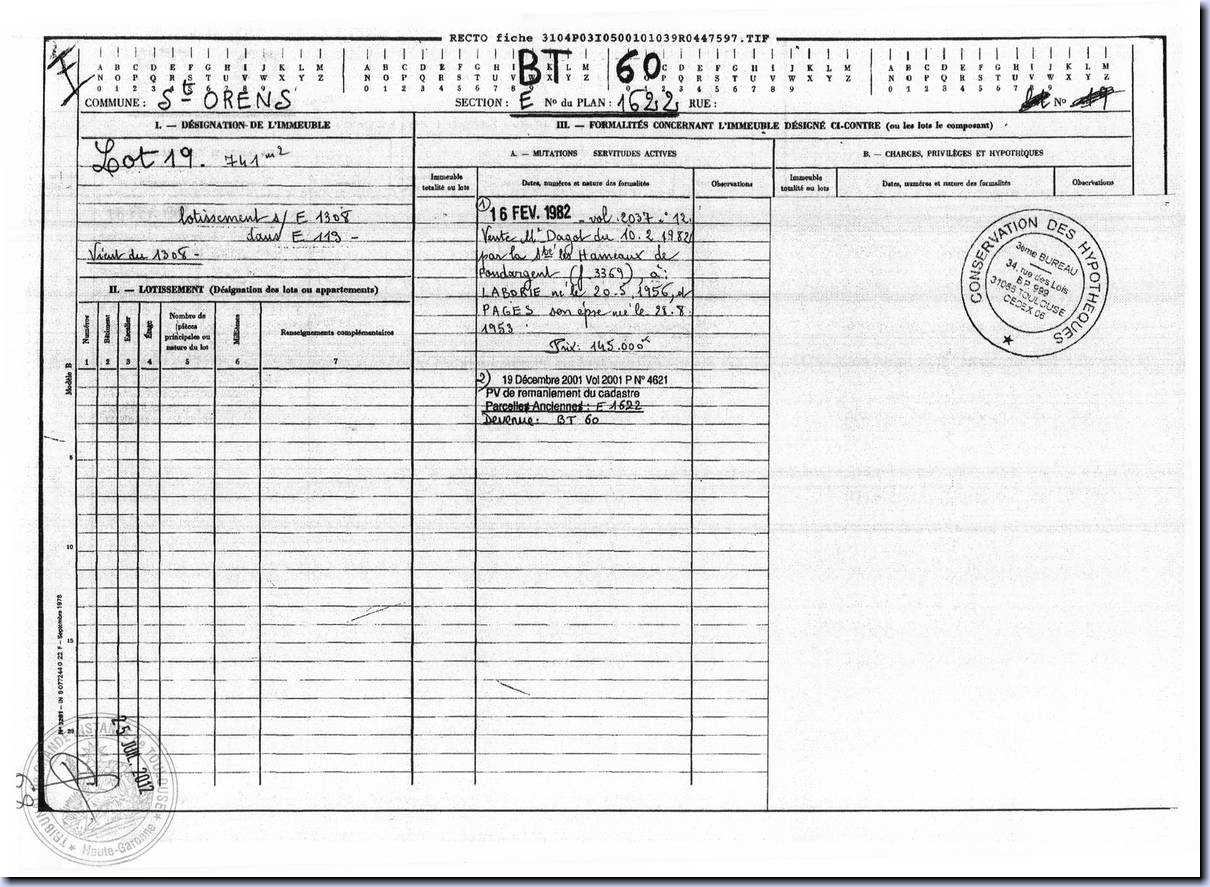 RECTO fiche 3104P03I0500101039R0447597.TIF
A B C D E F G H I J K L M
N O P Q R S T U V W X Y Z
0 1 2 3 4 5 6 7 8 9
BT 60
COMMUNE : St ORENS
SECTION : E No du PLAN : 1622 RUE :
No 19
I. — DÉSIGNATION DE L'IMMEUBLE
Lot 19. 741 m2
lotissement s/ E 1308
dans E 119 -
Vient du 1308 -
II. — LOTISSEMENT (Désignation des lots ou appartements)
Numéros
Bâtiment
Escalier
Étage
Nombre de pièces principales ou nature du lot
Millièmes
Renseignements complémentaires
1 2 3 4 5 6 7
III. — FORMALITÉS CONCERNANT L'IMMEUBLE DÉSIGNÉ CI-CONTRE (ou les lots le composant)
A. — MUTATIONS SERVITUDES ACTIVES
Immeuble totalité ou lots
Dates, numéros et nature des formalités
Observations
1) 16 FEV. 1982 - vol. 2037 n° 12
Vente Me Dagot du 10.2.1982
par la Sté les Hameaux de
Pondargent (f. 3369) à :
LABORIE né le 20.5.1956, et
PAGES son épse née le 28.8.
1953
Prix : 145.000 F
2) 19 Décembre 2001 Vol 2001 P N° 4621
PV de remaniement du cadastre
Parcelles Anciennes : E 1622
Devenue : BT 60
B. — CHARGES, PRIVILÈGES ET HYPOTHÈQUES
Immeuble totalité ou lots
Dates, numéros et nature des formalités
Observations
CONSERVATION DES HYPOTHEQUES
3eme BUREAU
34, rue des Lois
B.P. 589
31065 TOULOUSE
CEDEX 06
Modèle B
5
10
15
20
Septembre 1978
25 JUIL. 2012
Haute-Garonne